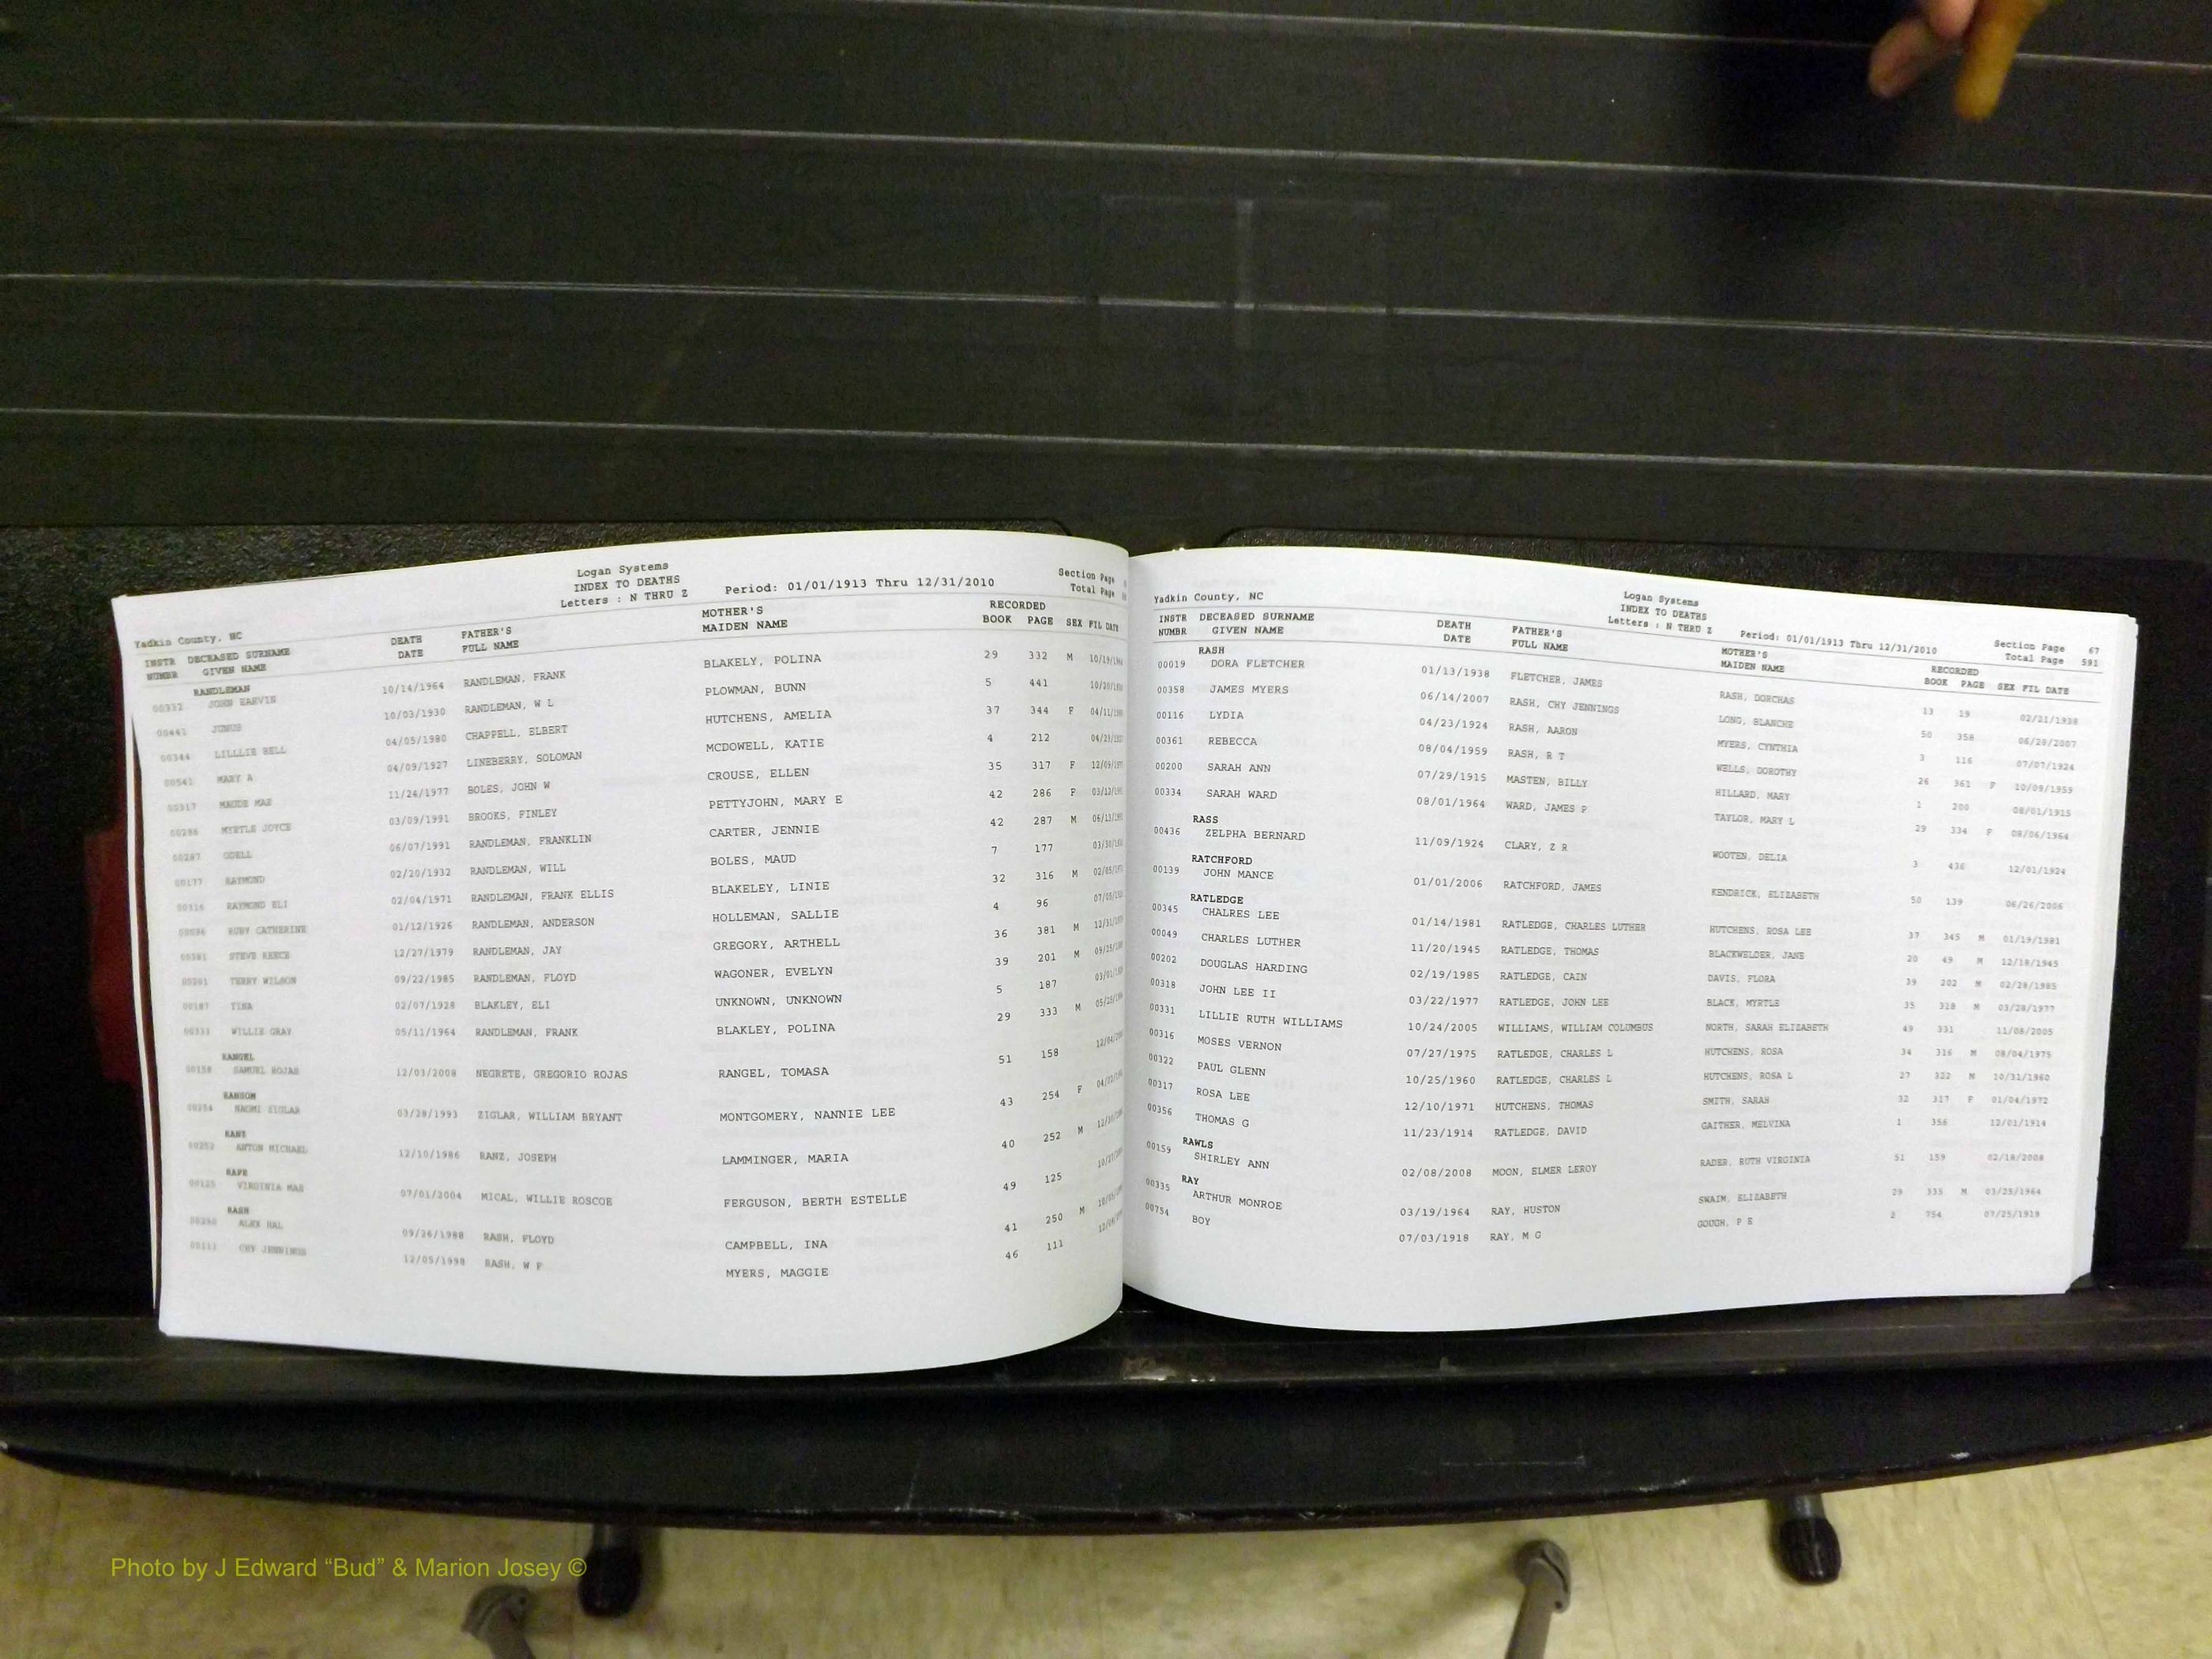 Logan Systems
INDEX TO DEATHS
Letters : N THRU Z Period: 01/01/1913 Thru 12/31/2010
Section Page
Total Page
Yadkin County, NC
INSTR DECEASED SURNAME DEATH FATHER'S MOTHER'S RECORDED
NUMBR GIVEN NAME DATE FULL NAME MAIDEN NAME BOOK PAGE SEX FIL DATE
RANDLEMAN
00332 JOHN EARVIN 10/14/1964 RANDLEMAN, FRANK BLAKELY, POLINA 29 332 M
00441 JUNUS 10/03/1930 RANDLEMAN, W L PLOWMAN, BUNN 5 441
00344 LILLLIE BELL 04/05/1980 CHAPPELL, ELBERT HUTCHENS, AMELIA 37 344 F
MARY A 04/09/1927 LINEBERRY, SOLOMAN MCDOWELL, KATIE 4 212
00317 MADGE MAE 11/24/1977 BOLES, JOHN W CROUSE, ELLEN 35 317 F
00286 MYRTLE JOYCE 03/09/1991 BROOKS, FINLEY PETTYJOHN, MARY E 42 286 F
00287 ODELL 06/07/1991 RANDLEMAN, FRANKLIN CARTER, JENNIE 42 287 M
00177 RAYMOND 02/20/1932 RANDLEMAN, WILL BOLES, MAUD 7 177
00316 RAYMOND ELI 02/04/1971 RANDLEMAN, FRANK ELLIS BLAKELEY, LINIE 32 316 M
00096 RUBY CATHERINE 01/12/1926 RANDLEMAN, ANDERSON HOLLEMAN, SALLIE 4 96
00381 STEVE REECE 12/27/1979 RANDLEMAN, JAY GREGORY, ARTHELL 36 381 M
00201 TERRY WILSON 09/22/1985 RANDLEMAN, FLOYD WAGONER, EVELYN 39 201 M
00187 TINA 02/07/1928 BLAKLEY, ELI UNKNOWN, UNKNOWN 5 187
00333 WILLIE GRAY 05/11/1964 RANDLEMAN, FRANK BLAKLEY, POLINA 29 333 M
RANGEL
00158 SAMUEL ROJAS 12/03/2008 NEGRETE, GREGORIO ROJAS RANGEL, TOMASA 51 158
RANSOM
00254 NAOMI ZIGLAR 03/28/1993 ZIGLAR, WILLIAM BRYANT MONTGOMERY, NANNIE LEE 43 254 F
RANZ
00252 ANTON MICHAEL 12/10/1986 RANZ, JOSEPH LAMMINGER, MARIA 40 252 M
RAPE
00125 VIRGINIA MAE 07/01/2004 MICAL, WILLIE ROSCOE FERGUSON, BERTH ESTELLE 49 125
RASH
00250 ALEX HAL 09/26/1988 RASH, FLOYD CAMPBELL, INA 41 250 M
00111 CHY JENNINGS 12/05/1998 RASH, W F MYERS, MAGGIE 46 111
Logan Systems
INDEX TO DEATHS
Letters : N THRU Z Period: 01/01/1913 Thru 12/31/2010
Section Page 67
Total Page 591
Yadkin County, NC
INSTR DECEASED SURNAME DEATH FATHER'S MOTHER'S RECORDED
NUMBR GIVEN NAME DATE FULL NAME MAIDEN NAME BOOK PAGE SEX FIL DATE
RASH
00019 DORA FLETCHER 01/13/1938 FLETCHER, JAMES RASH, DORCHAS 13 19 02/21/1938
00358 JAMES MYERS 06/14/2007 RASH, CHY JENNINGS LONG, BLANCHE 50 358 06/20/2007
00116 LYDIA 04/23/1924 RASH, AARON MYERS, CYNTHIA 3 116 07/07/1924
00361 REBECCA 08/04/1959 RASH, R T WELLS, DOROTHY 26 361 F 10/09/1959
00200 SARAH ANN 07/29/1915 MASTEN, BILLY HILLARD, MARY 1 200 08/01/1915
00334 SARAH WARD 08/01/1964 WARD, JAMES P TAYLOR, MARY L 29 334 F 08/06/1964
RASS
00436 ZELPHA BERNARD 11/09/1924 CLARY, Z R WOOTEN, DELIA 3 436 12/01/1924
RATCHFORD
00139 JOHN MANCE 01/01/2006 RATCHFORD, JAMES KENDRICK, ELIZABETH 50 139 06/26/2006
RATLEDGE
00345 CHALRES LEE 01/14/1981 RATLEDGE, CHARLES LUTHER HUTCHENS, ROSA LEE 37 345 M 01/19/1981
00049 CHARLES LUTHER 11/20/1945 RATLEDGE, THOMAS BLACKWELDER, JANE 20 49 M 12/18/1945
00202 DOUGLAS HARDING 02/19/1985 RATLEDGE, CAIN DAVIS, FLORA 39 202 M 02/28/1985
00318 JOHN LEE II 03/22/1977 RATLEDGE, JOHN LEE BLACK, MYRTLE 35 318 M 03/28/1977
00331 LILLIE RUTH WILLIAMS 10/24/2005 WILLIAMS, WILLIAM COLUMBUS NORTH, SARAH ELIZABETH 49 331 11/08/2005
00316 MOSES VERNON 07/27/1975 RATLEDGE, CHARLES L HUTCHENS, ROSA 34 316 M 08/04/1975
00322 PAUL GLENN 10/25/1960 RATLEDGE, CHARLES L HUTCHENS, ROSA L 27 322 M 10/31/1960
00317 ROSA LEE 12/10/1971 HUTCHENS, THOMAS SMITH, SARAH 32 317 F 01/04/1972
00356 THOMAS G 11/23/1914 RATLEDGE, DAVID GAITHER, MELVINA 1 356 12/01/1914
RAWLS
00159 SHIRLEY ANN 02/08/2008 MOON, ELMER LEROY RADER, RUTH VIRGINIA 51 159 02/18/2008
RAY
00335 ARTHUR MONROE 03/19/1964 RAY, HUSTON SWAIM, ELIZABETH 29 335 M 03/25/1964
00754 BOY 07/03/1918 RAY, M G GOUGH, P E 2 754 07/25/1919
Photo by J Edward “Bud” & Marion Josey ©